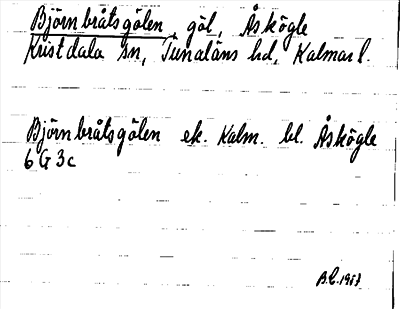 Björnbråtsgölen, göl, Åskögle
Kristdala sn, Tunaläns hd, Kalmar l.
Björnbråtsgölen ek. Kalm. bl. Åskögle
6 G 3c